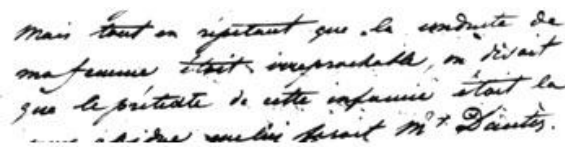 Mais tout en répétant que la conduite de
ma femme était irréprochable, on disait
que le prétexte de cette infamie était la
faisait Mr. Dantès.